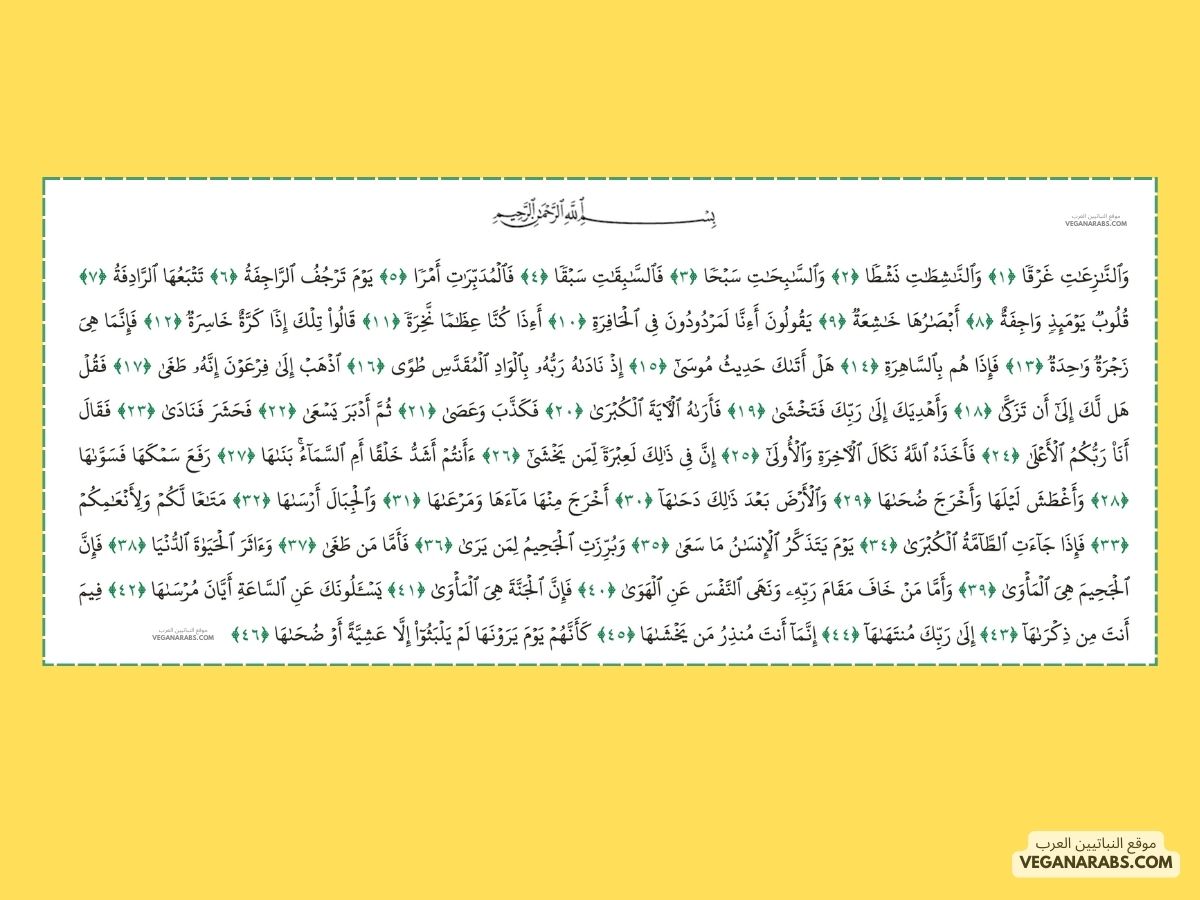 بِسْمِ ٱللَّهِ ٱلرَّحْمَٰنِ ٱلرَّحِيمِ
موقع النباتيين العرب
VEGANARABS.COM
وَٱلنَّٰزِعَٰتِ غَرْقًا ﴿١﴾ وَٱلنَّٰشِطَٰتِ نَشْطًا ﴿٢﴾ وَٱلسَّٰبِحَٰتِ سَبْحًا ﴿٣﴾ فَٱلسَّٰبِقَٰتِ سَبْقًا ﴿٤﴾ فَٱلْمُدَبِّرَٰتِ أَمْرًا ﴿٥﴾ يَوْمَ تَرْجُفُ ٱلرَّاجِفَةُ ﴿٦﴾ تَتْبَعُهَا ٱلرَّادِفَةُ ﴿٧﴾
قُلُوبٌ يَوْمَئِذٍ وَاجِفَةٌ ﴿٨﴾ أَبْصَٰرُهَا خَٰشِعَةٌ ﴿٩﴾ يَقُولُونَ أَءِنَّا لَمَرْدُودُونَ فِى ٱلْحَافِرَةِ ﴿١٠﴾ أَءِذَا كُنَّا عِظَٰمًا نَّخِرَةً ﴿١١﴾ قَالُوا۟ تِلْكَ إِذًا كَرَّةٌ خَاسِرَةٌ ﴿١٢﴾ فَإِنَّمَا هِىَ
زَجْرَةٌ وَٰحِدَةٌ ﴿١٣﴾ فَإِذَا هُم بِٱلسَّاهِرَةِ ﴿١٤﴾ هَلْ أَتَىٰكَ حَدِيثُ مُوسَىٰٓ ﴿١٥﴾ إِذْ نَادَىٰهُ رَبُّهُۥ بِٱلْوَادِ ٱلْمُقَدَّسِ طُوًى ﴿١٦﴾ ٱذْهَبْ إِلَىٰ فِرْعَوْنَ إِنَّهُۥ طَغَىٰ ﴿١٧﴾ فَقُلْ
هَل لَّكَ إِلَىٰٓ أَن تَزَكَّىٰ ﴿١٨﴾ وَأَهْدِيَكَ إِلَىٰ رَبِّكَ فَتَخْشَىٰ ﴿١٩﴾ فَأَرَىٰهُ ٱلْءَايَةَ ٱلْكُبْرَىٰ ﴿٢٠﴾ فَكَذَّبَ وَعَصَىٰ ﴿٢١﴾ ثُمَّ أَدْبَرَ يَسْعَىٰ ﴿٢٢﴾ فَحَشَرَ فَنَادَىٰ ﴿٢٣﴾ فَقَالَ
أَنَا۠ رَبُّكُمُ ٱلْأَعْلَىٰ ﴿٢٤﴾ فَأَخَذَهُ ٱللَّهُ نَكَالَ ٱلْءَاخِرَةِ وَٱلْأُولَىٰٓ ﴿٢٥﴾ إِنَّ فِى ذَٰلِكَ لَعِبْرَةً لِّمَن يَخْشَىٰٓ ﴿٢٦﴾ ءَأَنتُمْ أَشَدُّ خَلْقًا أَمِ ٱلسَّمَآءُ ۚ بَنَىٰهَا ﴿٢٧﴾ رَفَعَ سَمْكَهَا فَسَوَّىٰهَا
﴿٢٨﴾ وَأَغْطَشَ لَيْلَهَا وَأَخْرَجَ ضُحَىٰهَا ﴿٢٩﴾ وَٱلْأَرْضَ بَعْدَ ذَٰلِكَ دَحَىٰهَآ ﴿٣٠﴾ أَخْرَجَ مِنْهَا مَآءَهَا وَمَرْعَىٰهَا ﴿٣١﴾ وَٱلْجِبَالَ أَرْسَىٰهَا ﴿٣٢﴾ مَتَٰعًا لَّكُمْ وَلِأَنْعَٰمِكُمْ
﴿٣٣﴾ فَإِذَا جَآءَتِ ٱلطَّآمَّةُ ٱلْكُبْرَىٰ ﴿٣٤﴾ يَوْمَ يَتَذَكَّرُ ٱلْإِنسَٰنُ مَا سَعَىٰ ﴿٣٥﴾ وَبُرِّزَتِ ٱلْجَحِيمُ لِمَن يَرَىٰ ﴿٣٦﴾ فَأَمَّا مَن طَغَىٰ ﴿٣٧﴾ وَءَاثَرَ ٱلْحَيَوٰةَ ٱلدُّنْيَا ﴿٣٨﴾ فَإِنَّ
ٱلْجَحِيمَ هِىَ ٱلْمَأْوَىٰ ﴿٣٩﴾ وَأَمَّا مَنْ خَافَ مَقَامَ رَبِّهِۦ وَنَهَى ٱلنَّفْسَ عَنِ ٱلْهَوَىٰ ﴿٤٠﴾ فَإِنَّ ٱلْجَنَّةَ هِىَ ٱلْمَأْوَىٰ ﴿٤١﴾ يَسْـَٔلُونَكَ عَنِ ٱلسَّاعَةِ أَيَّانَ مُرْسَىٰهَا ﴿٤٢﴾ فِيمَ
أَنتَ مِن ذِكْرَىٰهَآ ﴿٤٣﴾ إِلَىٰ رَبِّكَ مُنتَهَىٰهَآ ﴿٤٤﴾ إِنَّمَآ أَنتَ مُنذِرُ مَن يَخْشَىٰهَا ﴿٤٥﴾ كَأَنَّهُمْ يَوْمَ يَرَوْنَهَا لَمْ يَلْبَثُوٓا۟ إِلَّا عَشِيَّةً أَوْ ضُحَىٰهَا ﴿٤٦﴾
موقع النباتيين العرب
VEGANARABS.COM
موقع النباتيين العرب
VEGANARABS.COM